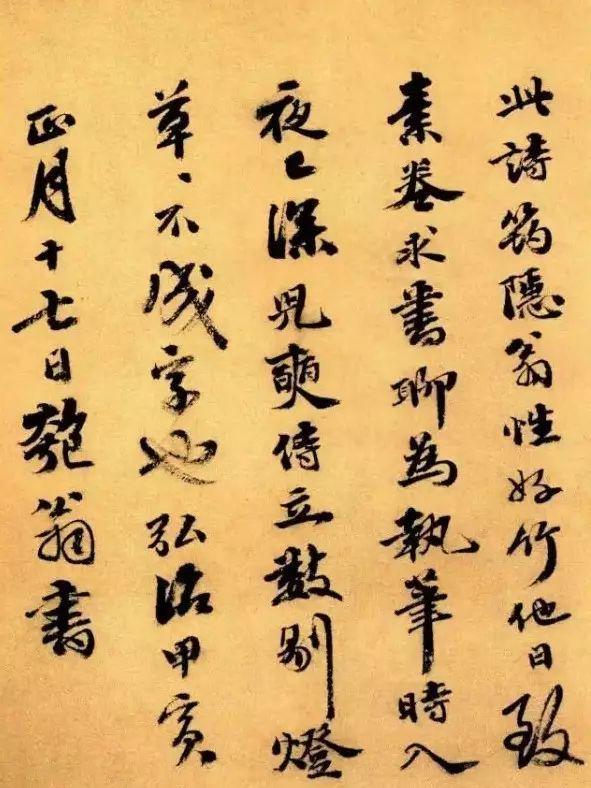 此詩筠隱翁性好竹他日致
素卷求書聊為執筆時入
夜已深兒奭侍立數剔燈
草〻不成字也弘治甲寅
正月十七日匏翁書